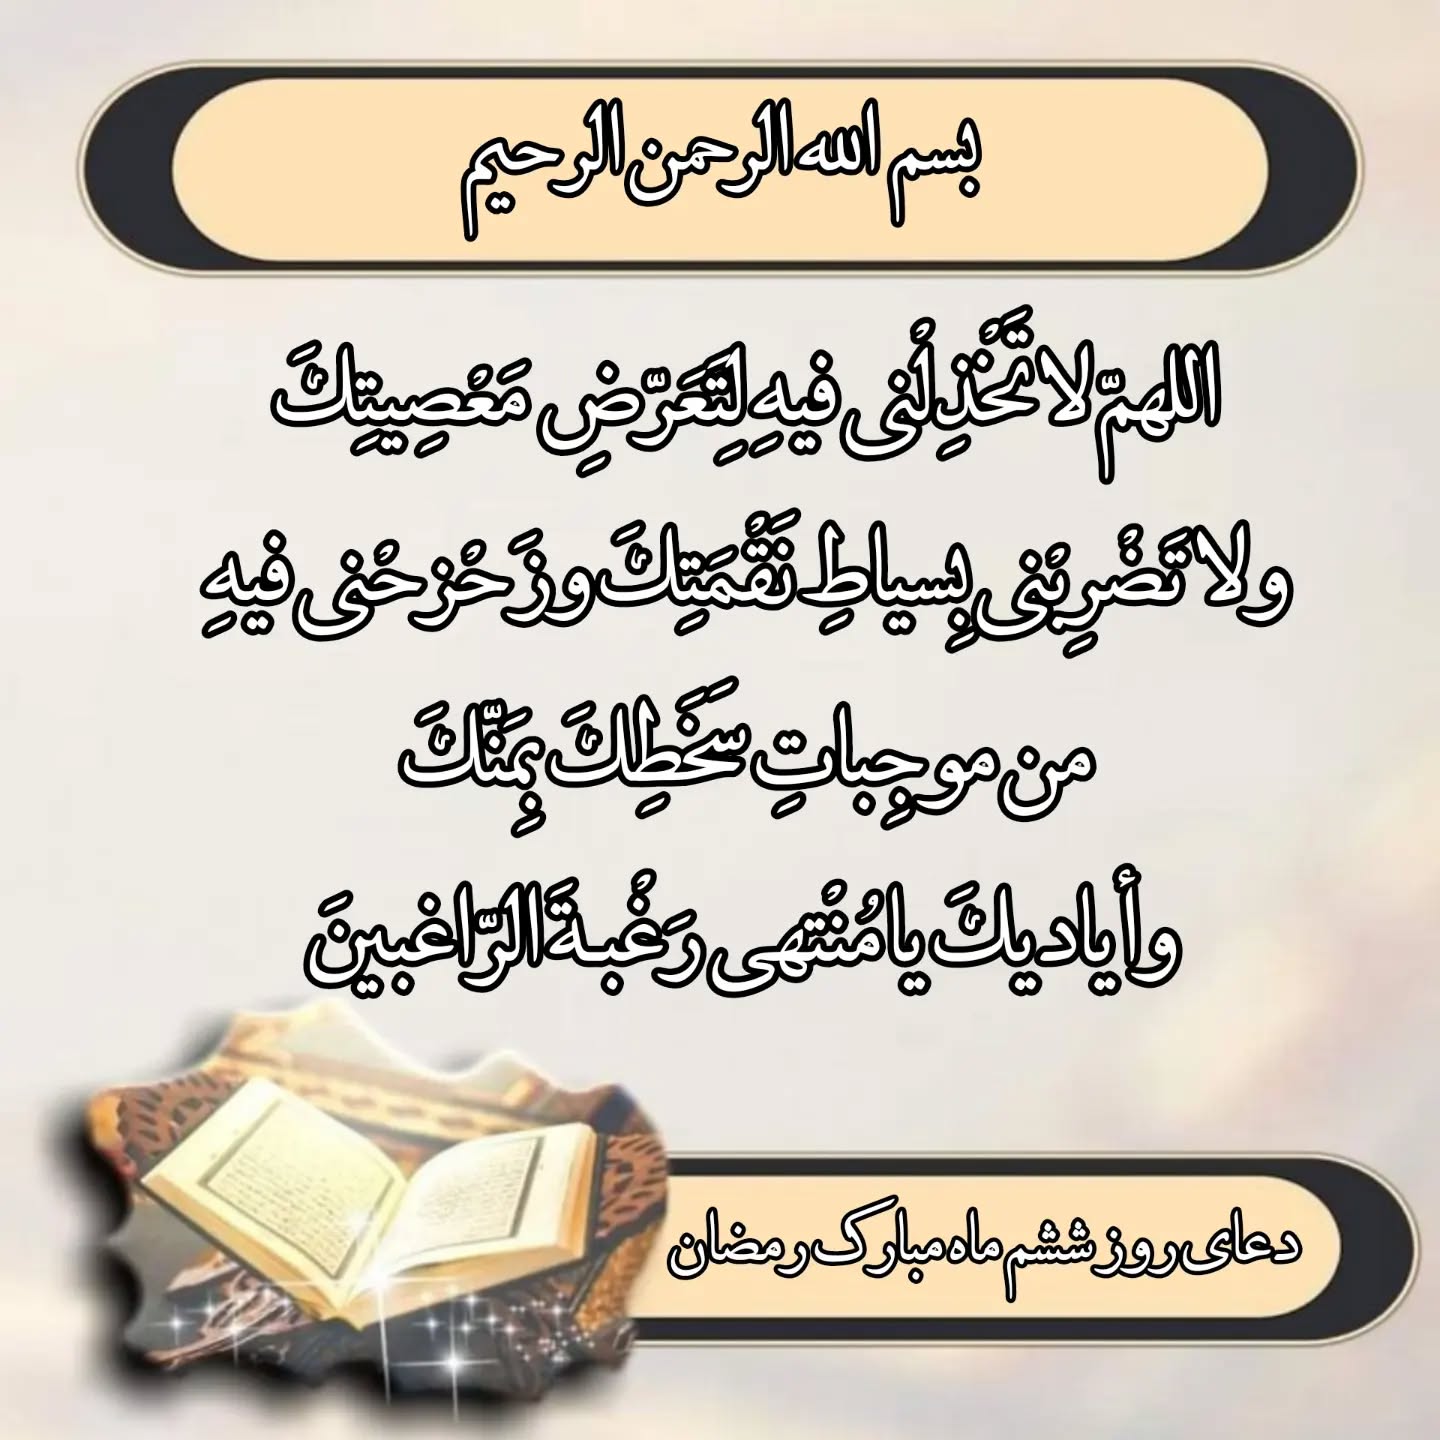 بسم الله الرحمن الرحیم
اللهمّ لا تَخْذِلْنی فیهِ لِتَعَرّضِ مَعْصِیتِكَ
ولا تَضْرِبْنی بِسیاطِ نَقْمَتِكَ وزَحْزحْنی فیهِ
من موجِباتِ سَخَطِكَ بِمَنّكَ
وأیادیكَ یا مُنْتهی رَغْبـةَ الرّاغبینَ
دعای روز ششم ماه مبارک رمضان